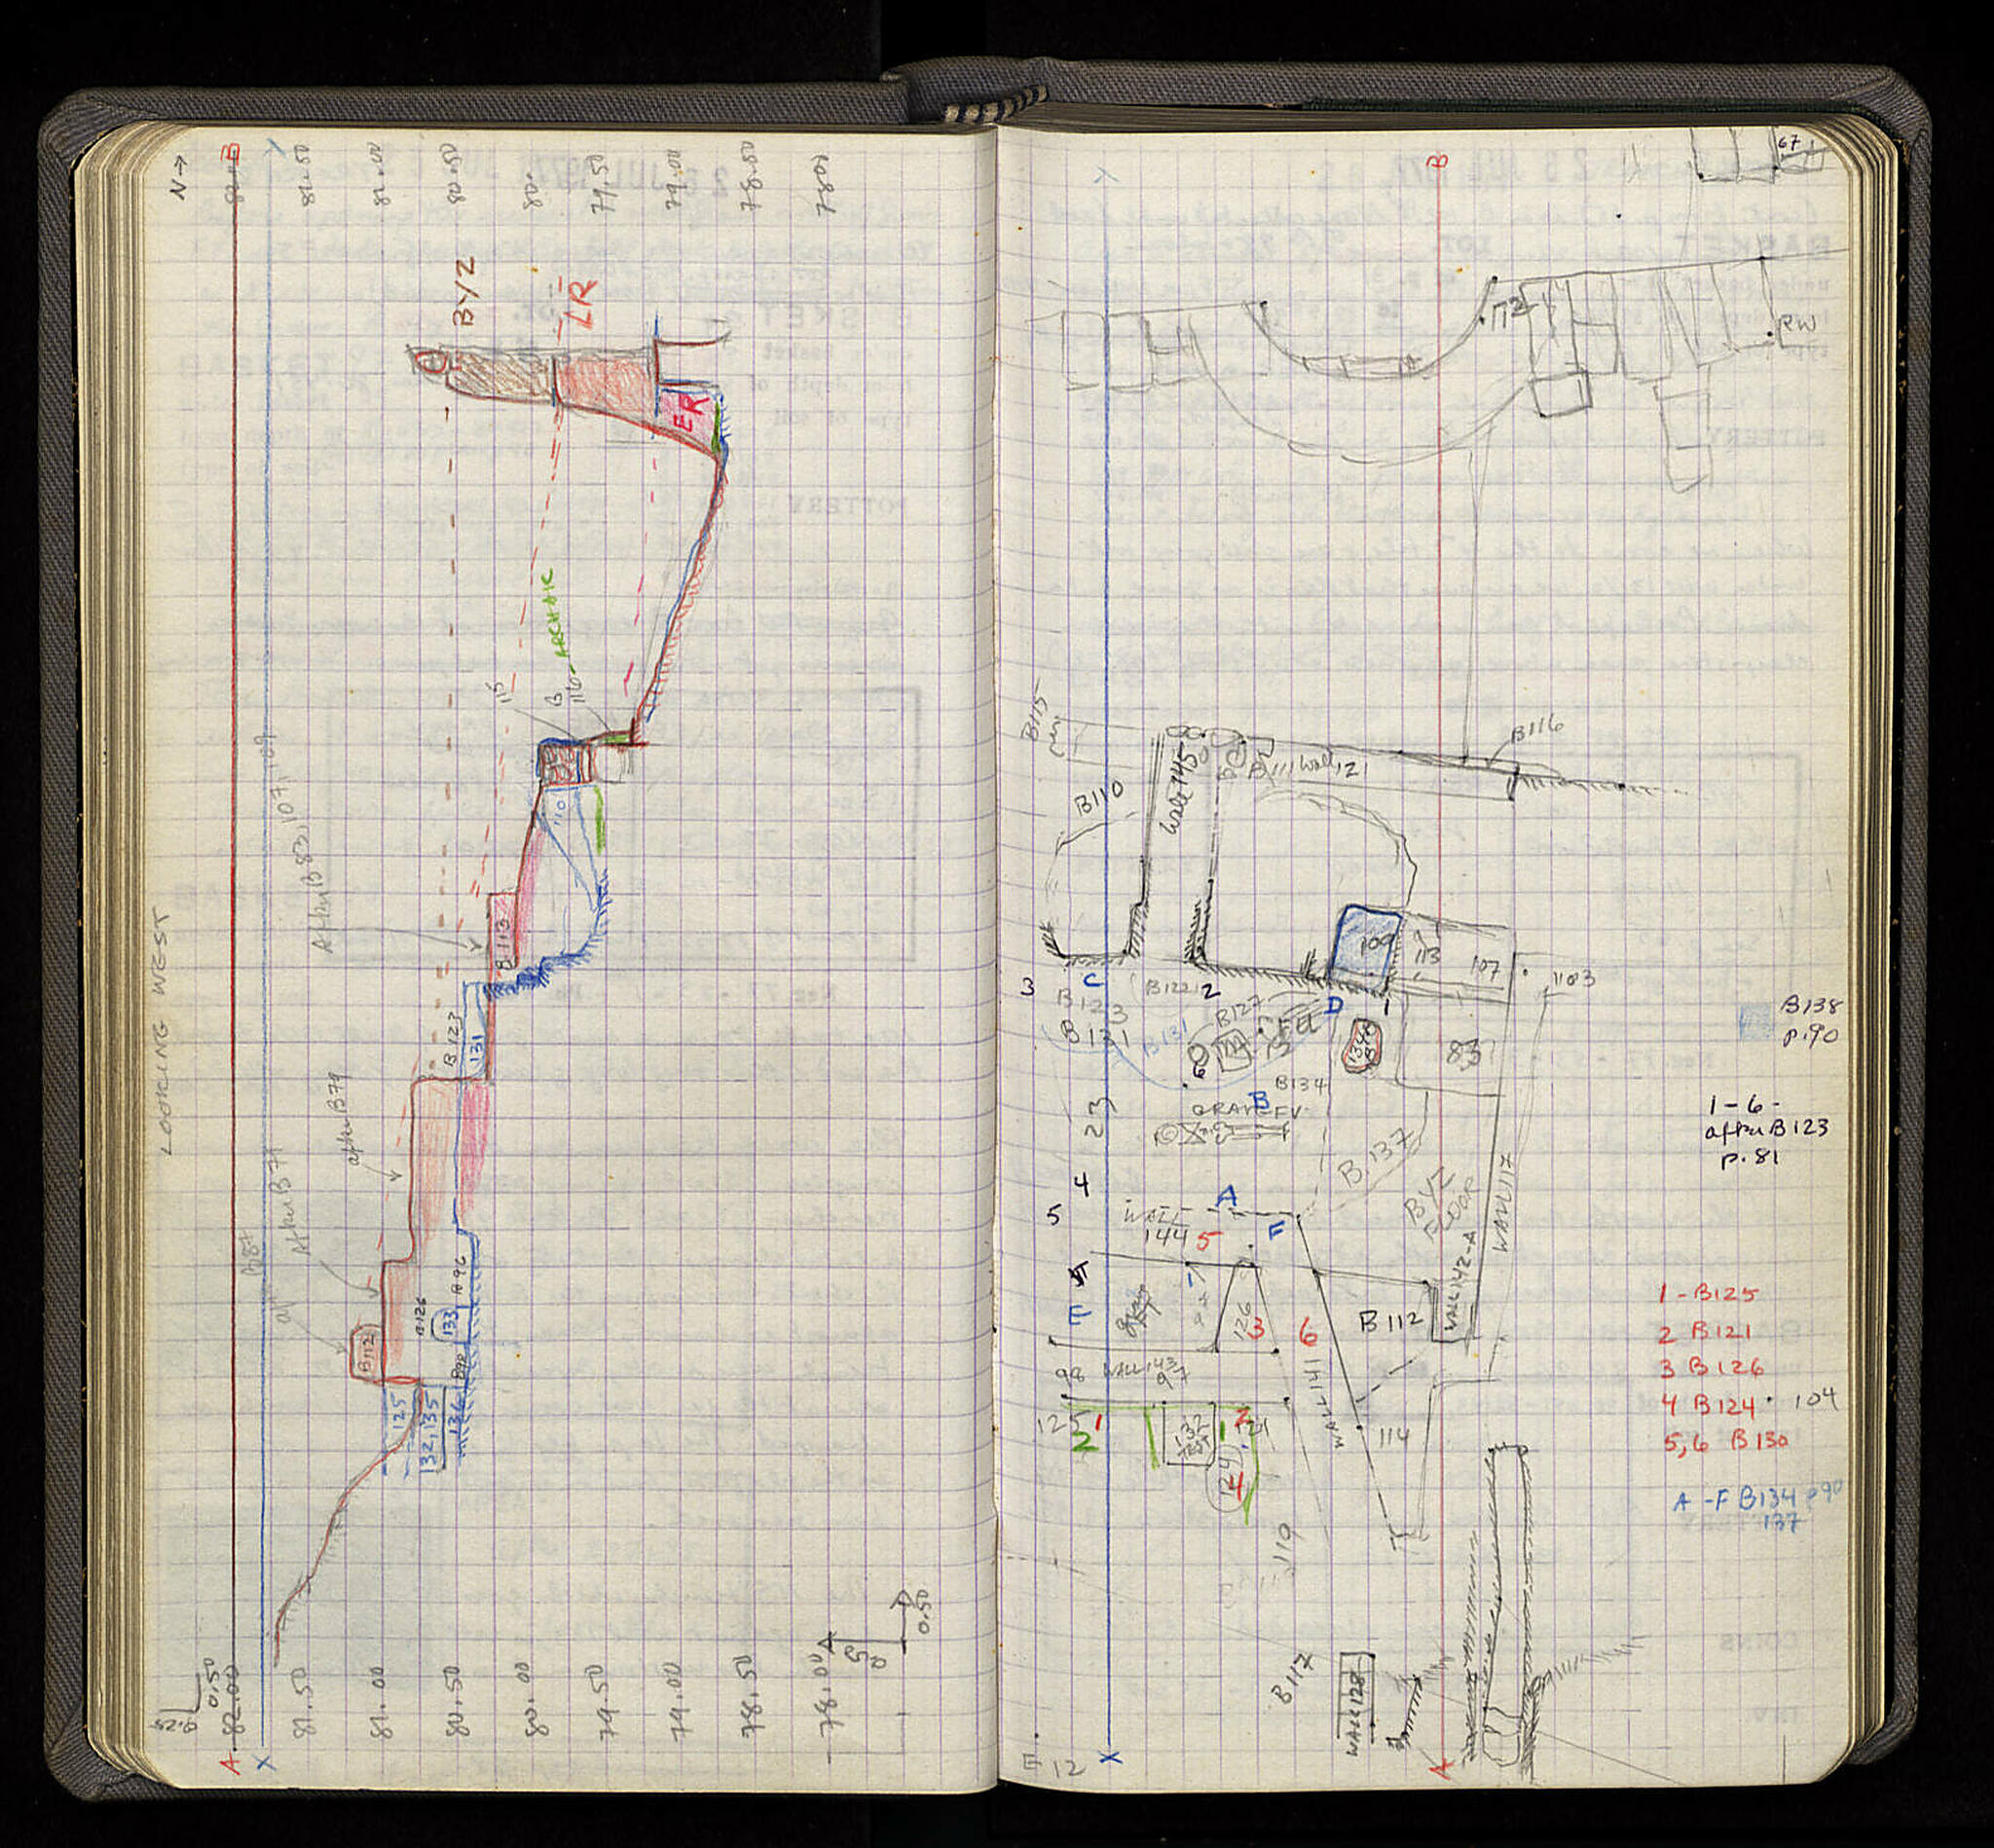 N→
82.00 B
81.50
81.00
80.50
80.
79.50
79.00
78.50
78.00
BYZ
LR
ER
ARCHAIC
115
B
116
110
After B 83, 107, 109
B 113
LOOKING WEST
B 123
131
after B79
After B 71
B87
B 96
B126
133
B112
B98
125
132, 135
136
0.50
0.50
0.50
A 82.00
X
81.50
81.00
80.50
80.00
79.50
79.00
78.50
78.00
67
B
112
RW
B115
B116
B110
Wall 145
B111 Wall 121
109
113
107
1103
3
C
B1221
2
D
1
B123
B131
B131
B127
B134
83
B138
p.90
23
B
GRAVE FV.
1-6-
after B 123
p. 81
B.137
4
5
WALL
144
A
5
F
BYZ
FLOOR
WALL 117
WALL 142-A
E
126
3
6
B 112
98
WALL 143
97
WALL 141
1 - B125
2 B121
3 B126
4 B124 · 104
5, 6 B130
125
1
2
132
135
2
1
121
124
4
114
A - F B134 p90
137
119
B117
WALL 128
E 12
X
A